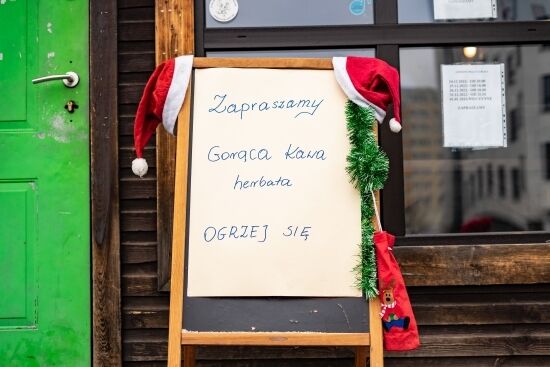 Zapraszamy
Gorąca kawa
herbata
OGRZEJ SIĘ
ZAPRASZAMY